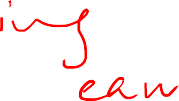 ing
ean